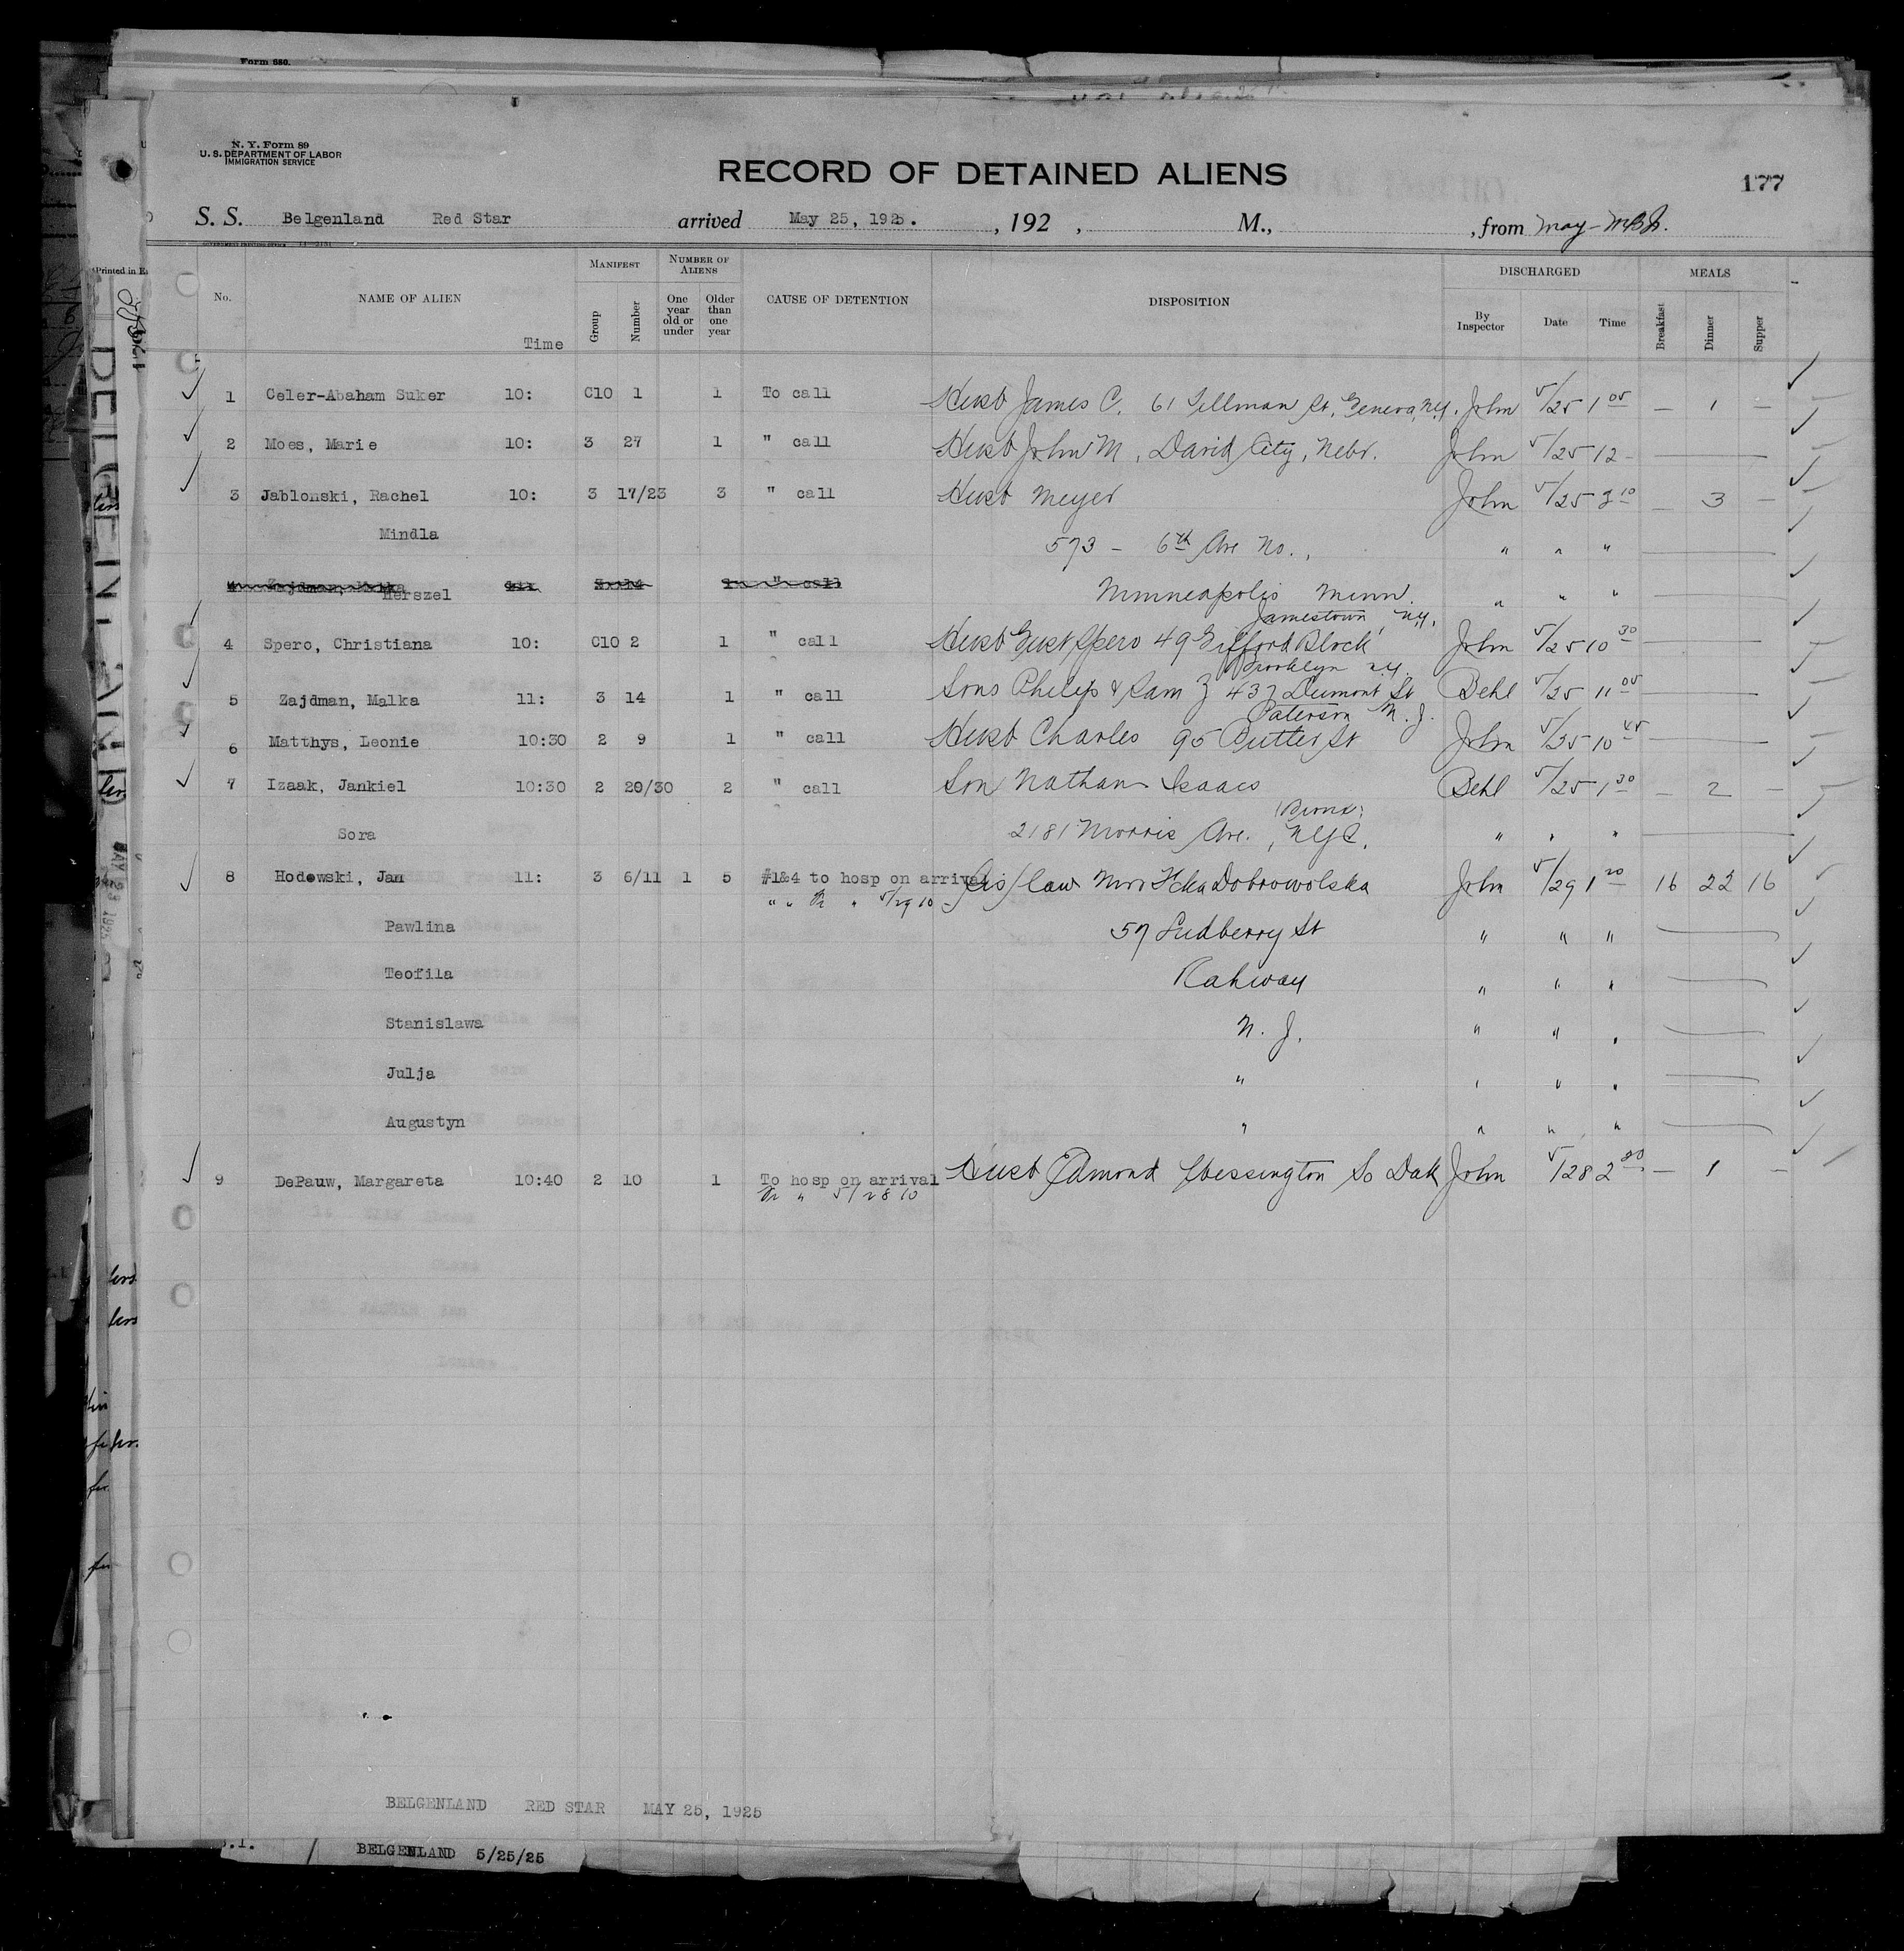 Form 880.
N. Y. Form 89
U. S. DEPARTMENT OF LABOR
IMMIGRATION SERVICE
RECORD OF DETAINED ALIENS
177
S. S. Belgenland Red Star arrived May 25, 1925. , 192 , M., , from May-
GOVERNMENT PRINTING OFFICE
Printed in
No. NAME OF ALIEN Time MANIFEST Group Number NUMBER OF ALIENS One year old or under Older than one year CAUSE OF DETENTION DISPOSITION DISCHARGED By Inspector Date Time MEALS Breakfast Dinner Supper
1 Celer-Abaham Suker 10: C10 1 1 To call Husb James C. 61 Tillman St, Geneva, N.Y. John 5/25 1 05 — 1 —
2 Moes, Marie 10: 3 27 1 " call Husb John M, David City, Nebr. John 5/25 12 -
3 Jablonski, Rachel 10: 3 17/23 3 " call Husb Meyer John 5/25 2 10 — 3 —
Mindla 573 - 6th Ave No., " " "
4 Zajdman, Malka 11: 3 14 1 " call
Herszel Minneapolis Minn. " " "
4 Spero, Christiana 10: C10 2 1 " call Husb Gust Spero 49 Gifford Block Jamestown, N.Y. John 5/25 10 30
5 Zajdman, Malka 11: 3 14 1 " call Sons Philip & Sam Z 437 Dumont St Brooklyn N.Y. Behl 5/25 11 05
6 Matthys, Leonie 10:30 2 9 1 " call Husb Charles 95 Butler St Paterson N.J. John 5/25 10 45
7 Izaak, Jankiel 10:30 2 29/30 2 " call Son Nathan Isaacs Behl 5/25 1 30 — 2 —
Sora 2181 Morris Ave., Bronx, NYC. " " "
8 Hodowski, Jan 11: 3 6/11 1 5 #1&4 to hosp on arrival Sis/law Mrs Dobrowolska John 5/29 1 20 16 22 16
" " Fr " 5/29 10
Pawlina 57 Sudberry St " " "
Teofila Rahway " " "
Stanislawa N. J. " " "
Julja " " " "
Augustyn " " " "
9 DePauw, Margareta 10:40 2 10 1 To hosp on arrival Husb Edmond Wessington So Dak John 5/28 2 — 1 —
Fr " 5/28 10
BELGENLAND RED STAR MAY 25, 1925
BELGENLAND 5/25/25